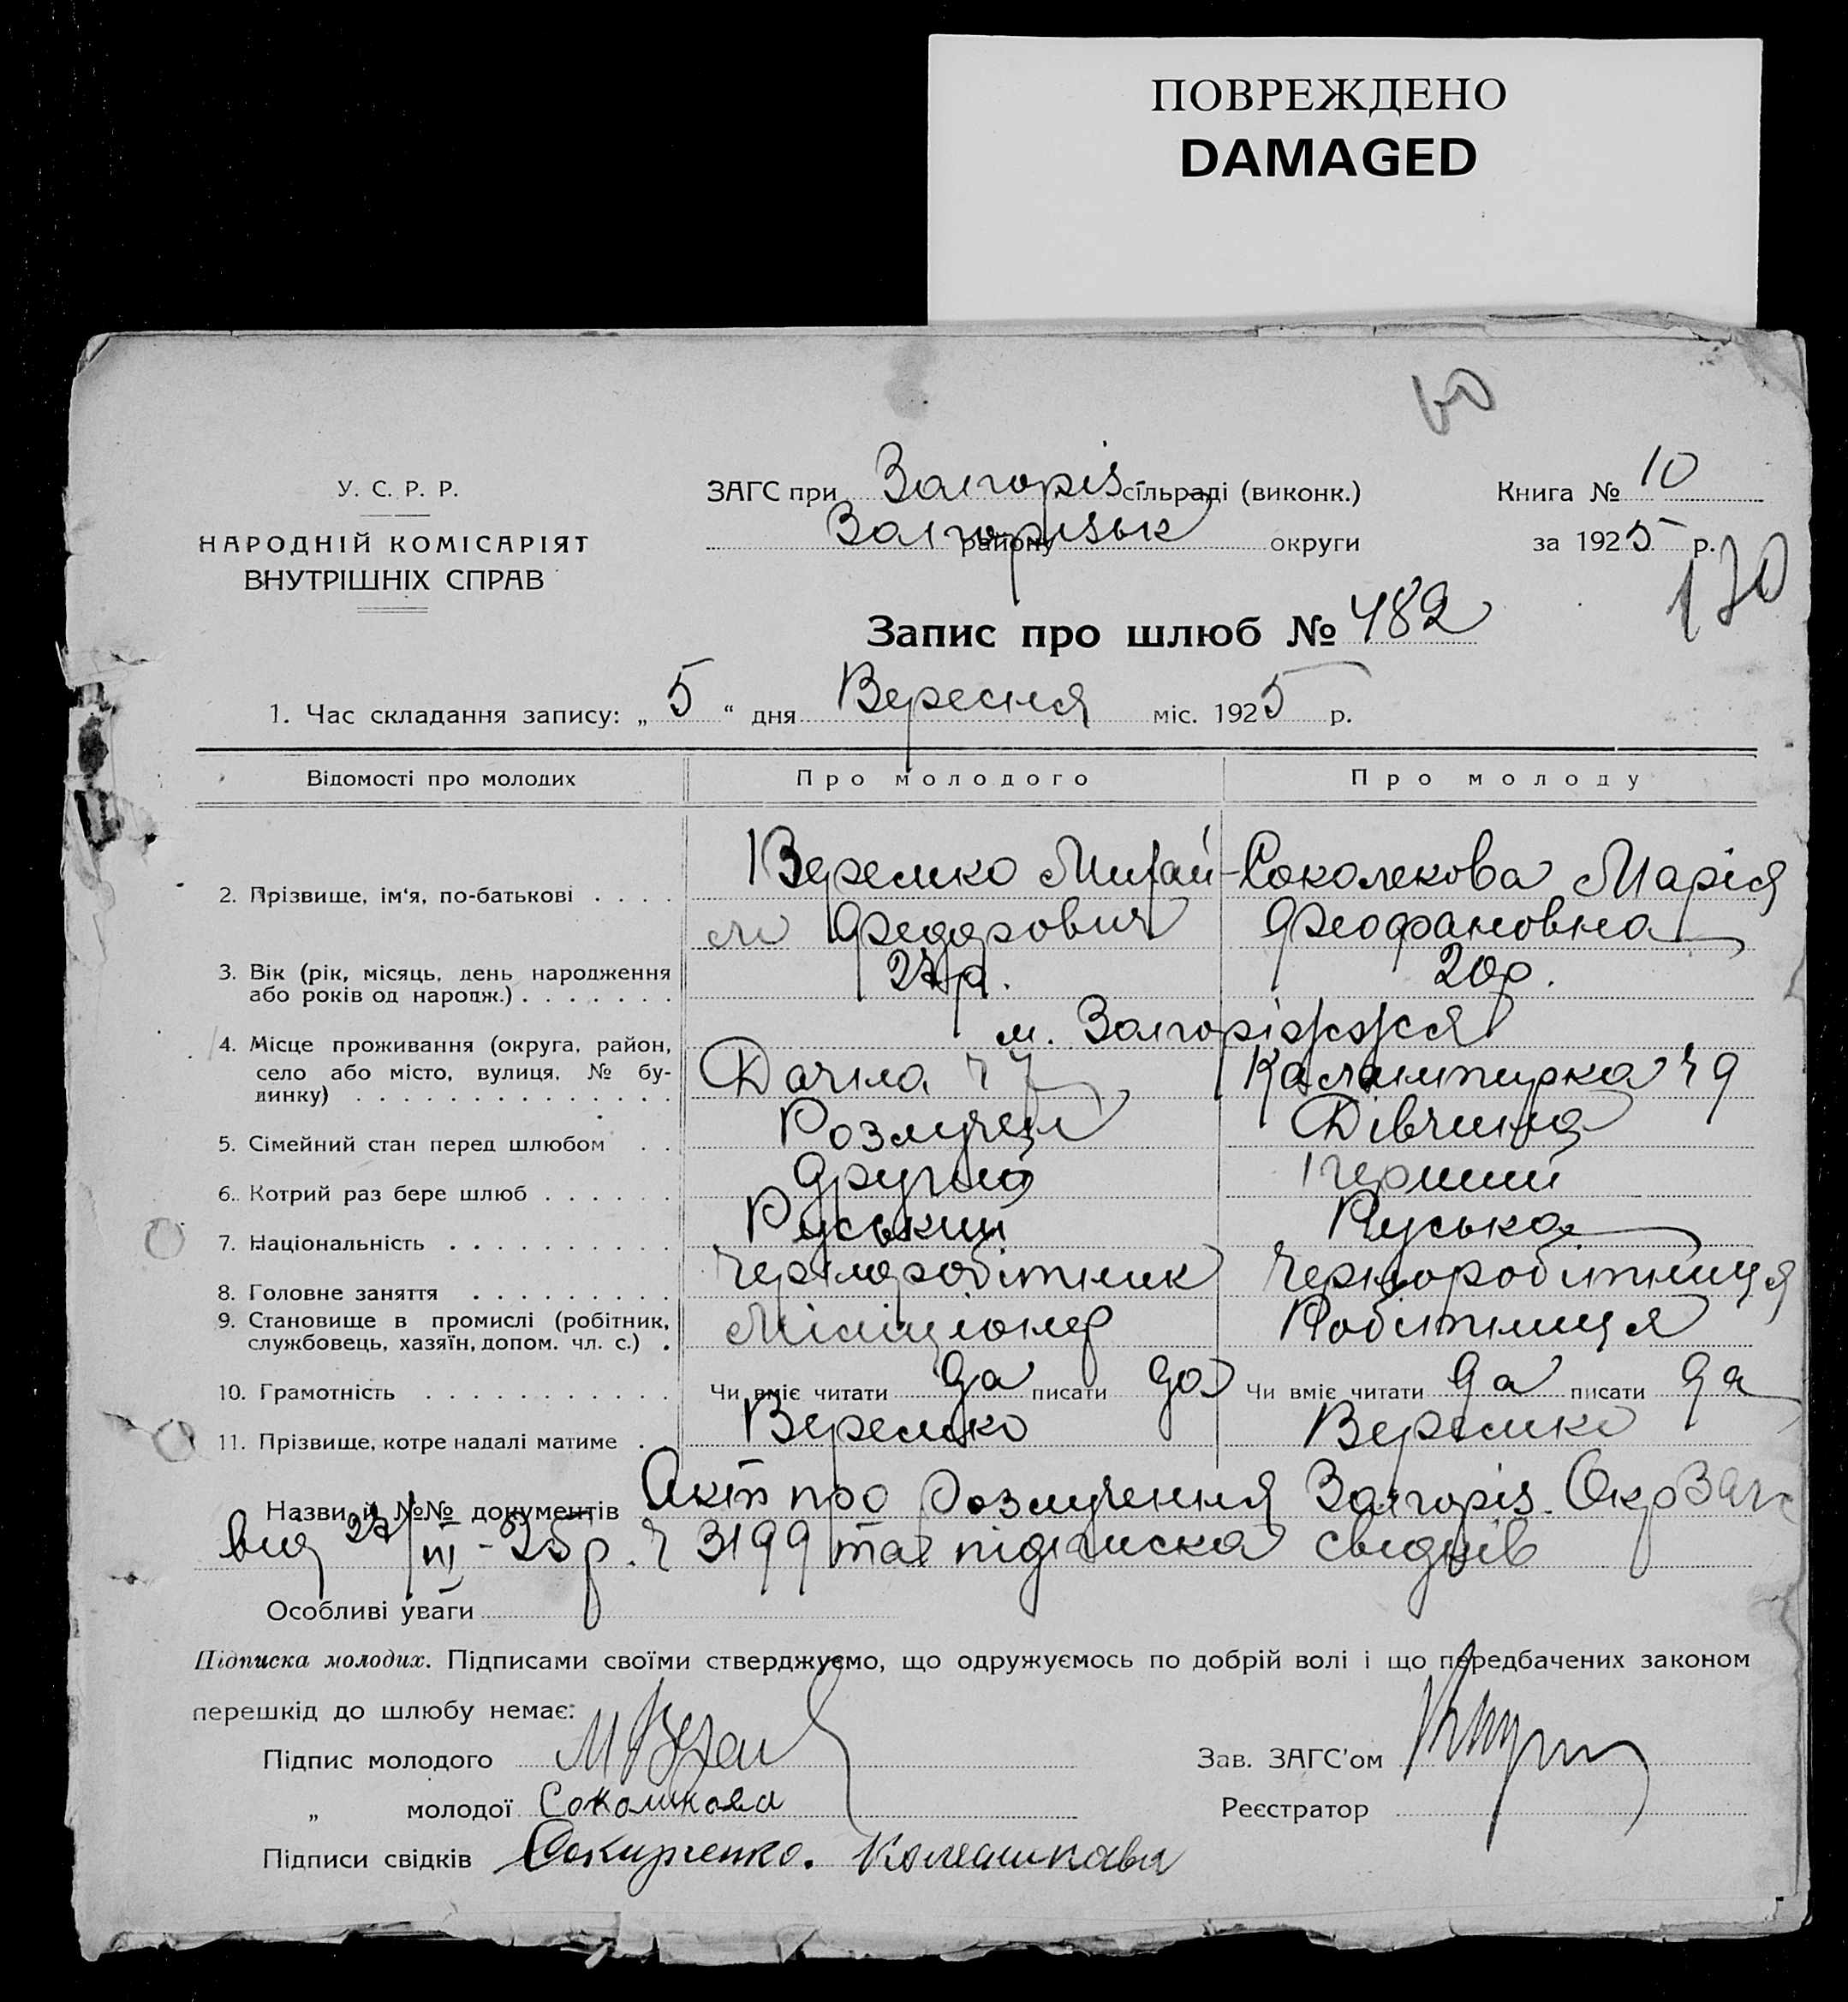 ПОВРЕЖДЕНО
DAMAGED
60
У. С. Р. Р.
НАРОДНІЙ КОМІСАРІЯТ
ВНУТРІШНІХ СПРАВ
ЗАГС при Запоріз сільраді (виконк.)
Запорізьк району округи
Книга № 10
за 1925 р.
130
Запис про шлюб № 482
1. Час складання запису: „ 5 “ дня Вересня міс. 1925 р.
Відомості про молодих Про молодого Про молоду
2. Прізвище, ім‘я, по-батькові . . . . Веремко Михай- Марія
ло Федорович Феофановна
3. Вік (рік, місяць, день народження
або років од народж.) . . . . . . . 27р. 20р.
4. Місце проживання (округа, район, м. Запоріжжя
село або місто, вулиця, № бу-
динку) . . . . . . . . . . . . . . . Дачна ч 7 ч 9
5. Сімейний стан перед шлюбом . . Дівчина
6. Котрий раз бере шлюб . . . . . . другий перший
7. Національність . . . . . . . . . . Руський Руська
8. Головне заняття . . . . . . . . . Чернoробітник Чернoробітниця
9. Становище в промислі (робітник,
службовець, хазяїн, допом. чл. с.) . Міліціонер Робітниця
10. Грамотність . . . . . . . . . . . Чи вміє читати да писати да Чи вміє читати да писати да
11. Прізвище, котре надалі матиме . Веремко Веремко
Назви й №№ документів Акт про розлучення Запоріз. Окр Загс
від 27/VI-25р. ч 3199 та підписка свідків
Особливі уваги
Підписка молодих. Підписами своїми стверджуємо, що одружуємось по добрій волі і що передбачених законом
перешкід до шлюбу немає:
Підпис молодого Зав. ЗАГС'ом
„ молодої Соколикова Реєстратор
Підписи свідків